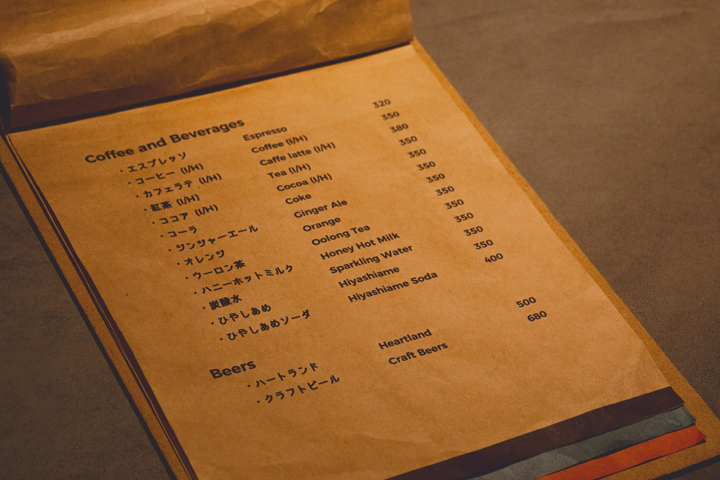 Coffee and Beverages
・エスプレッソ Espresso 320
・コーヒー (I/H) Coffee (I/H) 350
・カフェラテ (I/H) Caffe latte (I/H) 380
・紅茶 (I/H) Tea (I/H) 350
・ココア (I/H) Cocoa (I/H) 350
・コーラ Coke 350
・ジンジャーエール Ginger Ale 350
・オレンジ Orange 350
・ウーロン茶 Oolong Tea 350
・ハニーホットミルク Honey Hot Milk 350
・炭酸水 Sparkling Water 350
・ひやしあめ Hiyashiame 350
・ひやしあめソーダ Hiyashiame Soda 400
Beers
・ハートランド Heartland 500
・クラフトビール Craft Beers 680